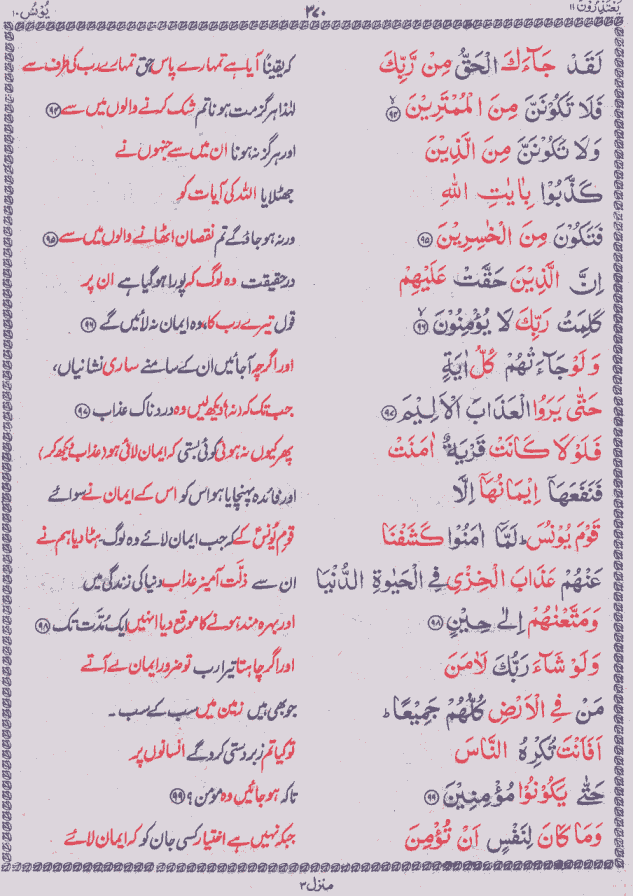 یعتذرون ۱۱
۳۷۰
یونس ۱۰
لَقَدْ جَآءَكَ الْحَقُّ مِنْ رَّبِّكَ
کہ یقیناً آیا ہے تمہارے پاس حق تمہارے رب کی طرف سے
فَلَا تَكُوْنَنَّ مِنَ الْمُمْتَرِيْنَ ۹۴
لہٰذا ہرگز مت ہونا تم شک کرنے والوں میں سے ۹۴
وَلَا تَكُوْنَنَّ مِنَ الَّذِيْنَ
اور ہرگز نہ ہونا ان میں سے جنہوں نے
كَذَّبُوْا بِاٰيٰتِ اللّٰهِ
جھٹلایا اللہ کی آیات کو
فَتَكُوْنَ مِنَ الْخٰسِرِيْنَ ۹۵
ورنہ ہو جاؤ گے تم نقصان اٹھانے والوں میں سے ۹۵
اِنَّ الَّذِيْنَ حَقَّتْ عَلَيْهِمْ
درحقیقت وہ لوگ کہ پورا ہوگیا ہے ان پر
كَلِمَتُ رَبِّكَ لَا يُؤْمِنُوْنَ ۹۶
قول تیرے رب کا، وہ ایمان نہ لائیں گے ۹۶
وَلَوْ جَآءَتْهُمْ كُلُّ اٰيَةٍ
اور اگرچہ آجائیں ان کے سامنے ساری نشانیاں،
حَتّٰى يَرَوُا الْعَذَابَ الْاَلِيْمَ ۹۷
جب تک کہ (نہ) دیکھ لیں وہ دردناک عذاب ۹۷
فَلَوْلَا كَانَتْ قَرْيَةٌ اٰمَنَتْ
پھر کیوں نہ ہوئی کوئی بستی کہ ایمان لائی ہو (عذاب دیکھ کر)
فَنَفَعَهَآ اِيْمَانُهَآ اِلَّا
اور فائدہ پہنچایا ہو اس کو اس کے ایمان نے سوائے
قَوْمَ يُوْنُسَ ؕ لَمَّآ اٰمَنُوْا كَشَفْنَا
قوم یونسؑ کے کہ جب ایمان لائے وہ لوگ ہٹا دیا ہم نے
عَنْهُمْ عَذَابَ الْخِزْيِ فِي الْحَيٰوةِ الدُّنْيَا
ان سے ذلّت آمیز عذاب دنیا کی زندگی میں
وَمَتَّعْنٰهُمْ اِلٰى حِيْنٍ ۹۸
اور بہرہ مند ہونے کا موقع دیا انہیں ایک مُدّت تک ۹۸
وَلَوْ شَآءَ رَبُّكَ لَاٰمَنَ
اور اگر چاہتا تیرا رب تو ضرور ایمان لے آتے
مَنْ فِي الْاَرْضِ كُلُّهُمْ جَمِيْعًا ؕ
جو بھی ہیں زمین میں سب کے سب ۔
اَفَاَنْتَ تُكْرِهُ النَّاسَ
تو کیا تم زبردستی کرو گے انسانوں پر
حَتّٰى يَكُوْنُوْا مُؤْمِنِيْنَ ۹۹
تاکہ ہو جائیں وہ مؤمن؟ ۹۹
وَمَا كَانَ لِنَفْسٍ اَنْ تُؤْمِنَ
جبکہ نہیں ہے اختیار کسی جان کو کہ ایمان لائے
منزل ۳